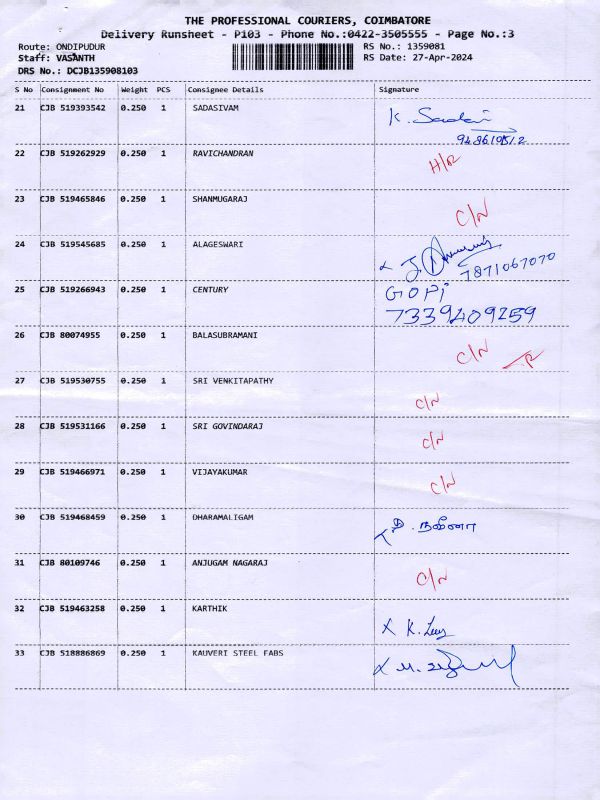 THE PROFESSIONAL COURIERS, COIMBATORE
Delivery Runsheet - P103 - Phone No.:0422-3505555 - Page No.:3
Route: ONDIPUDUR RS No.: 1359081
Staff: VASANTH RS Date: 27-Apr-2024
DRS No.: DCJB135908103
S No Consignment No Weight PCS Consignee Details Signature
21 CJB 519393542 0.250 1 SADASIVAM K. Sadai
22 CJB 519262929 0.250 1 RAVICHANDRAN H/R
23 CJB 519465846 0.250 1 SHANMUGARAJ C/N
24 CJB 519545685 0.250 1 ALAGESWARI
7871067070
25 CJB 519266943 0.250 1 CENTURY GOPi
7339409259
26 CJB 80074955 0.250 1 BALASUBRAMANI C/N
27 CJB 519530755 0.250 1 SRI VENKITAPATHY C/N
28 CJB 519531166 0.250 1 SRI GOVINDARAJ C/N
29 CJB 519466971 0.250 1 VIJAYAKUMAR C/N
30 CJB 519468459 0.250 1 DHARAMALIGAM
31 CJB 80109746 0.250 1 ANJUGAM NAGARAJ C/N
32 CJB 519463258 0.250 1 KARTHIK
33 CJB 518886869 0.250 1 KAUVERI STEEL FABS